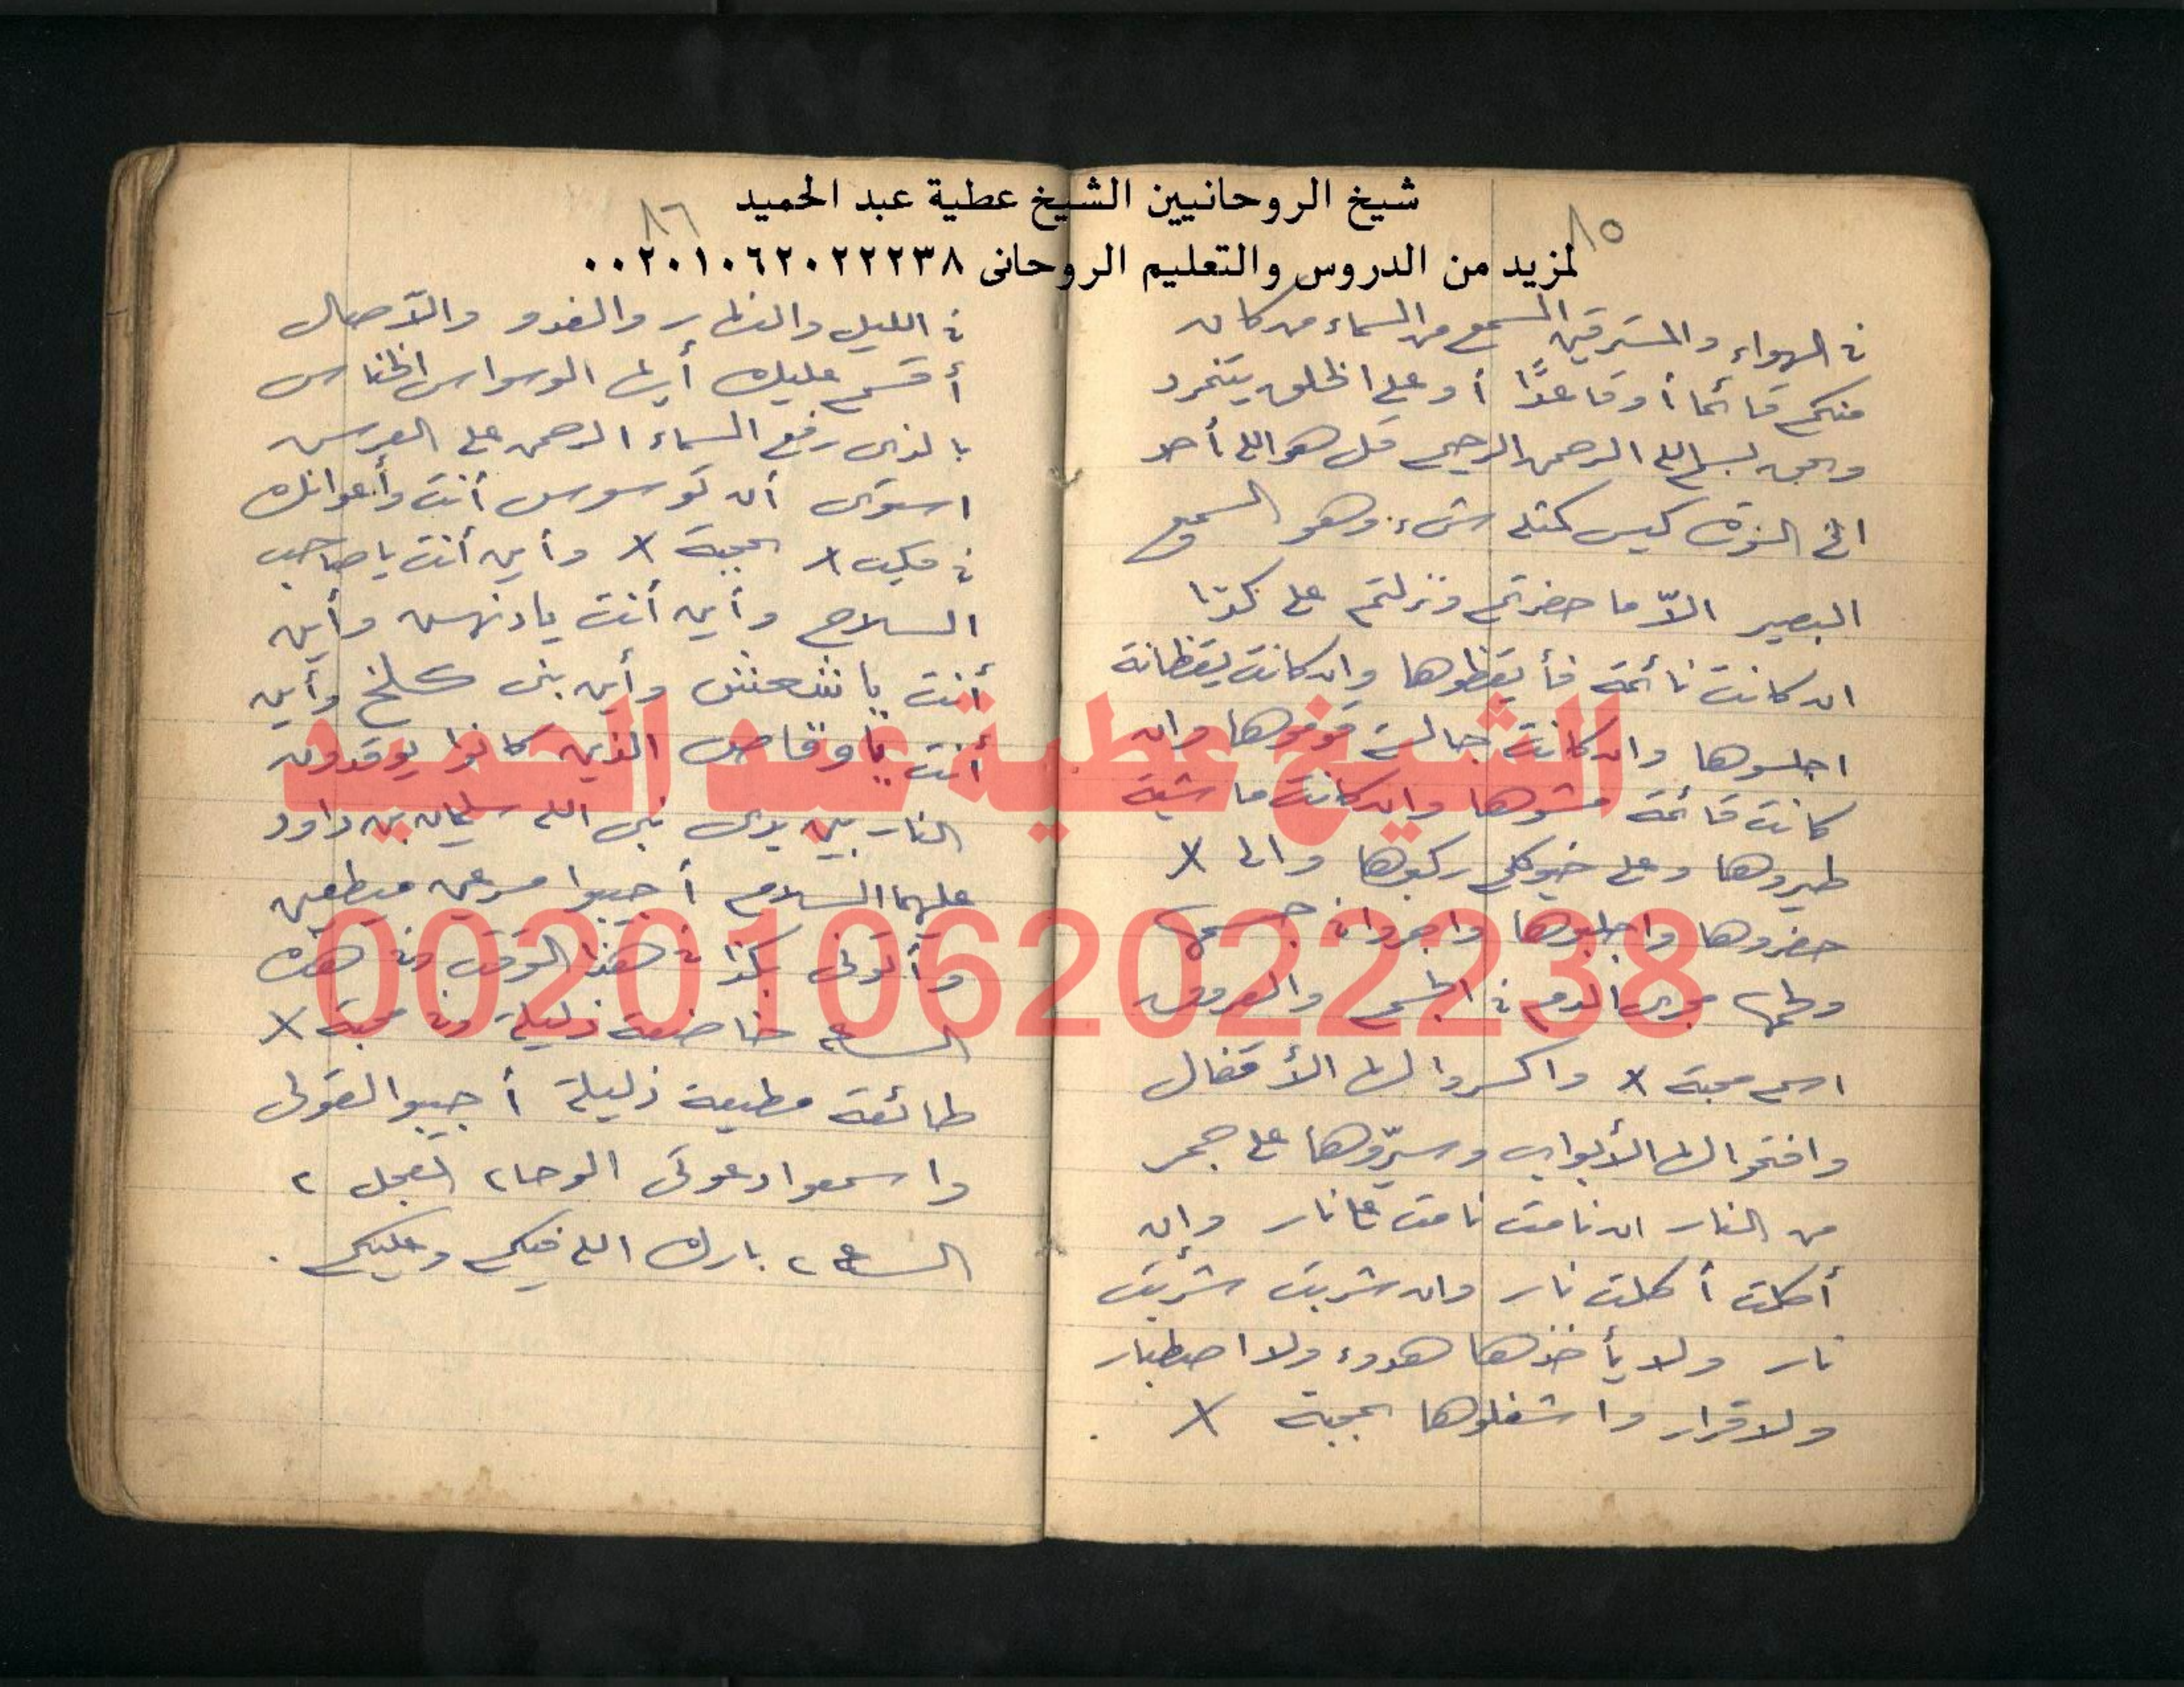 شيخ الروحانيين الشيخ عطية عبد الحميد
لمزيد من الدروس والتعليم الروحانى ٠٠٢٠١٠٦٢٠٢٢٢٣٨
٨٥
فى الهواء والمسترقين السمع من السماء من كان
منكم قائماً أو قاعداً أو على الخلق يتمرد
وبحق بسم الله الرحمن الرحيم قل هو الله أحد
الخ السورة ليس كمثله شىء وهو السميع
البصير الاّ ما حضرتم ونزلتم على كذا
ان كانت نائمة فأيقظوها وان كانت يقظانة
اجلسوها وان كانت جالسة قوموها وان
كانت قائمة مشوها وان كانت ماشية
طيروها وعلى خيولكم ركبوها والى X
حضروها واجلبوها واجروا فى جسمها
ولحمها مجرى الدم فى الجسم والعروق
اسم محبة X واكسروا لها الأقفال
وافتحوا لها الأبواب وسيّروها على جمر
من النار ان نامت نامت على نار وان
أكلت أكلت نار وان شربت شربت
نار ولا يأخذها هدوء ولا اصطبار
ولا قرار واشغلوها بمحبة X .
٨٦
فى الليل والنهار والغدو والآصال
أقسم عليك أيها الوسواس الخناس
بالذى رفع السماء الرحمن على العرش
استوى أن توسوس أنت وأعوانك
فى X بمحبة X وأين أنت يا صاحب
السلاح وأين أنت يا دنهش وأين
أنت يا شعنش وأين بنى كلخ وأين
أنت يا وقاص الذين كانوا يوقدون
النار بين يدى نبى الله سليمان بن داود
عليهما السلام أجيبوا مسرعين مطيعين
وأتونى بكذا فى هذا الوقت وفى هذه
الساعة خاضعة ذليلة وفى محبة X
طائعة مطيعة ذليلة أجيبوا لقولى
واسمعوا دعوتى الوحا ٢ العجل ٢
الساعة ٢ بارك الله فيكم وعليكم .
الشيخ عطية عبد الحميد
00201062022238